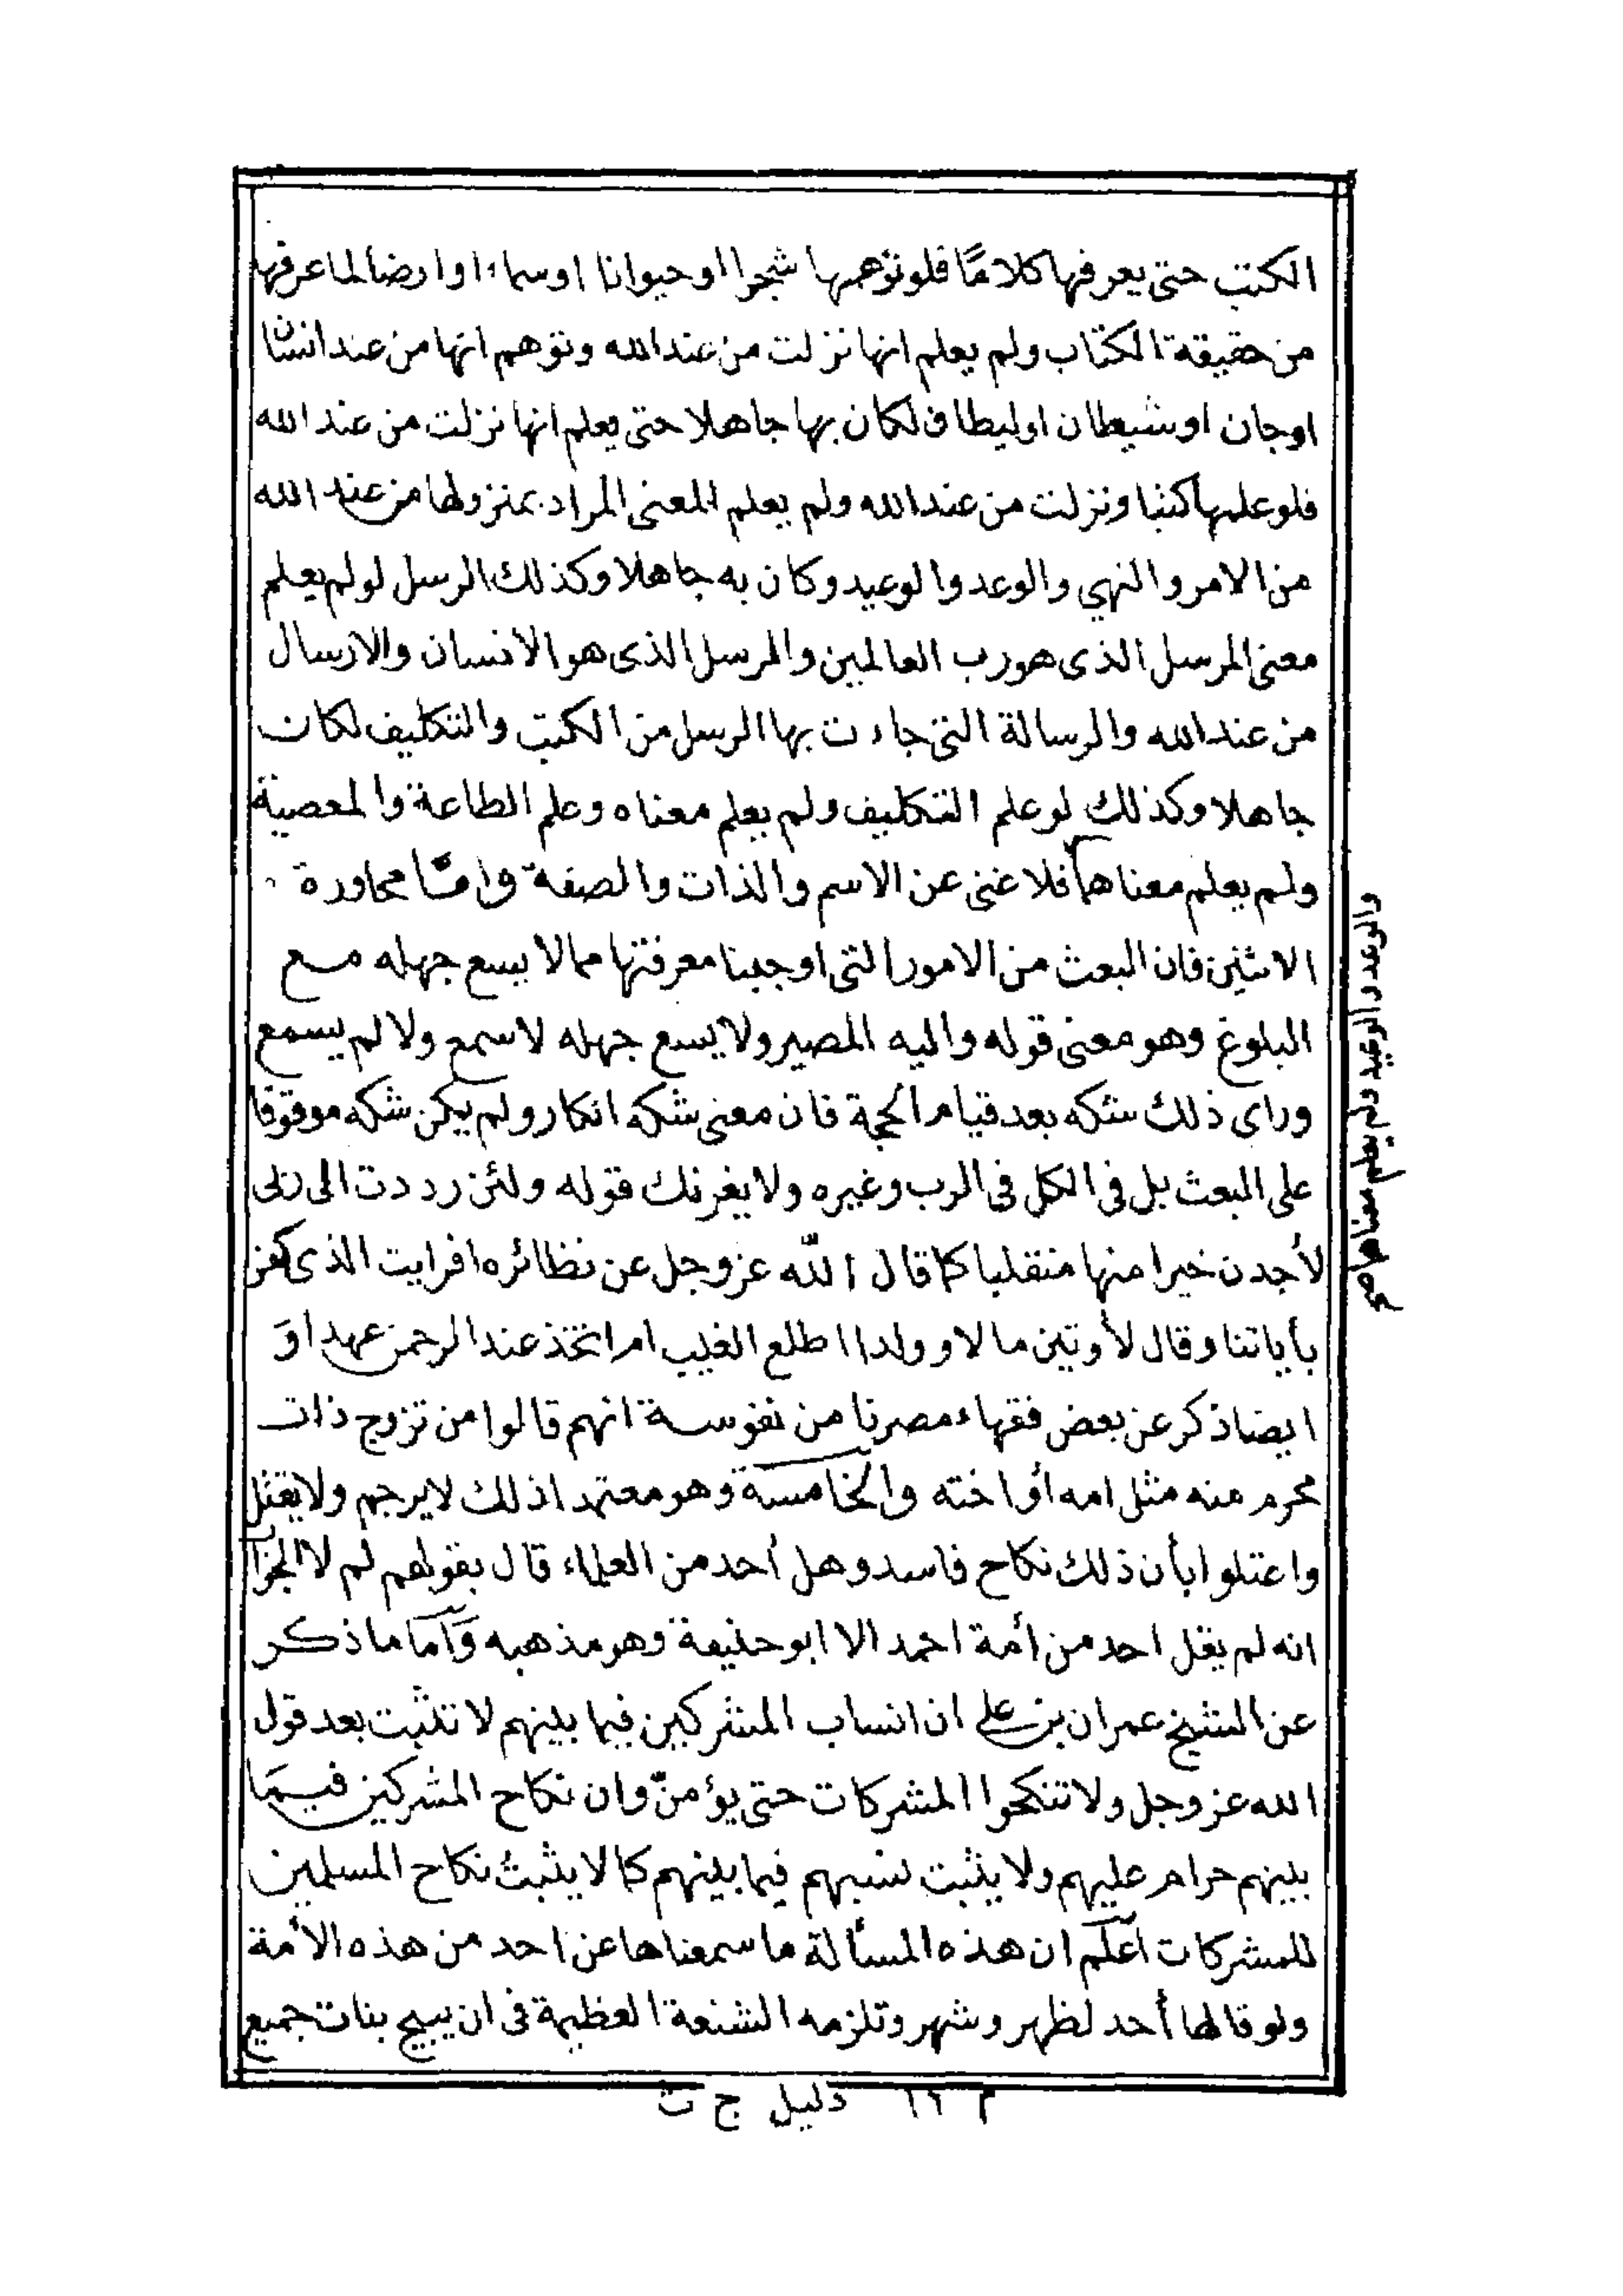 الكتب حتى يعرفها كلاما فلو توهمها شجرا او حيوانا او سماء او ارضا لما عرفها
من حقيقة الكتاب ولم يعلم انها نزلت من عند الله وتوهم انها من عند انسان
او جان او شيطان او ليطان لكان بها جاهلا حتى يعلم انها نزلت من عند الله
فلو علمها كتبا ونزلت من عند الله ولم يعلم المعنى المراد بمنزولها من عند الله
من الامر والنهي والوعد والوعيد وكان به جاهلا وكذلك الرسل لو لم يعلم
معنى المرسل الذى هو رب العالمين والمرسل الذى هو الانسان والارسال
من عند الله والرسالة التى جاءت بها الرسل من الكتب والتكليف لكان
جاهلا وكذلك لو علم التكليف ولم يعلم معناه وعلم الطاعة والمعصية
ولم يعلم معناهما فلا غنى عن الاسم والذات والصفة وامّا محاورة
الاثنين فان البعث من الامور التى اوجبنا معرفتها مما لا يسع جهله مع
البلوغ وهو معنى قوله واليه المصير ولا يسع جهله لا سمع ولا لم يسمع
وراى ذلك شكه بعد قيام الحجة فان معنى شكه انكار ولم يكن شكه موقوفا
على البعث بل فى الكل فى الرب وغيره ولا يغرنك قوله ولئن رددت الى ربى
لأجدن خيرا منها منقلبا كما قال الله عز وجل عن نظائره افرايت الذى كفر
بأياتنا وقال لأوتين مالا وولدا اطلع الغيب ام اتخذ عند الرحمن عهدا وَ
ايضا ذكر عن بعض فقهاء مصرنا من نفوسة انهم قالوا من تزوج ذات
محرم منه مثل امه أو اخته والخامسة وهو معتمد اذلك لا يرجم ولا يقتل
واعتلوا بأن ذلك نكاح فاسد وهل أحد من العلماء قال بقولهم لم لا الجواب
انه لم يقل احد من أمة احمد الا ابو حنيفة وهو مذهبه وأما ما ذكر
عن الشيخ عمران بن على ان انساب المشركين فيما بينهم لا تثبت بعد قول
الله عز وجل ولا تنكحوا المشركات حتى يؤمنّ وان نكاح المشركين فيمَا
بينهم حرام عليهم ولا يثبت نسبهم فيما بينهم كما لا يثبت نكاح المسلمين
للمشركات أعلم ان هذه المسألة ما سمعناها عن احد من هذه الأمة
ولو قالها أحد لظهر وشهر وتلزمه الشنعة العظيمة فى ان يبيح بنات جميع
والوعد والوعيد ولم يعلم معناهما صح
م ١٢ دليل ج ث